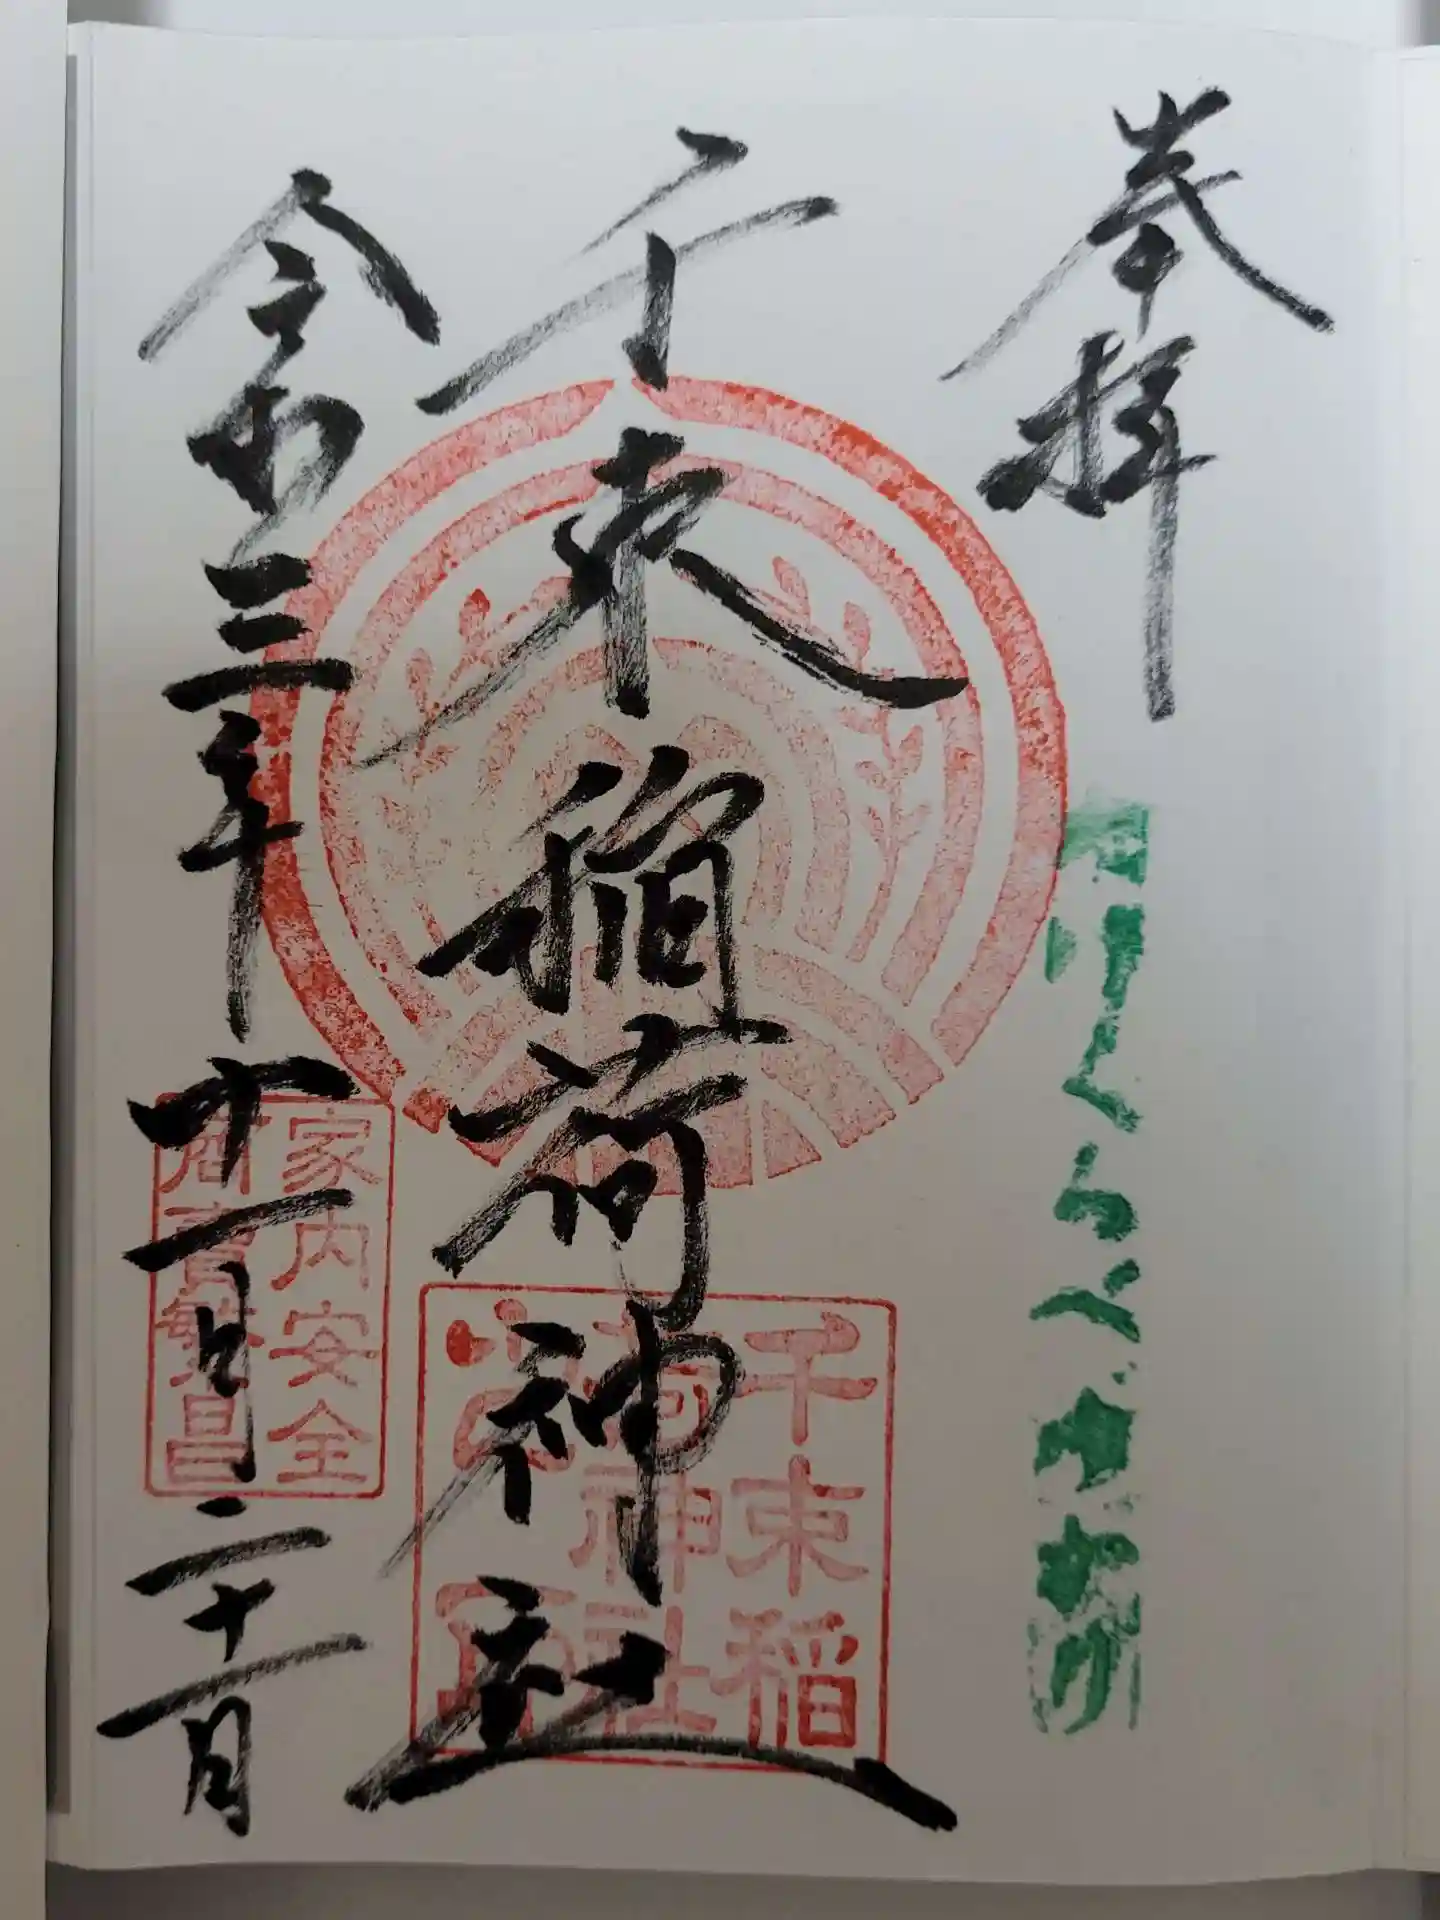 奉拝
たけくらべ
千束稲荷神社
千束稲
荷神社
令和三年十一月二十一日
家内安全
商賣繁昌